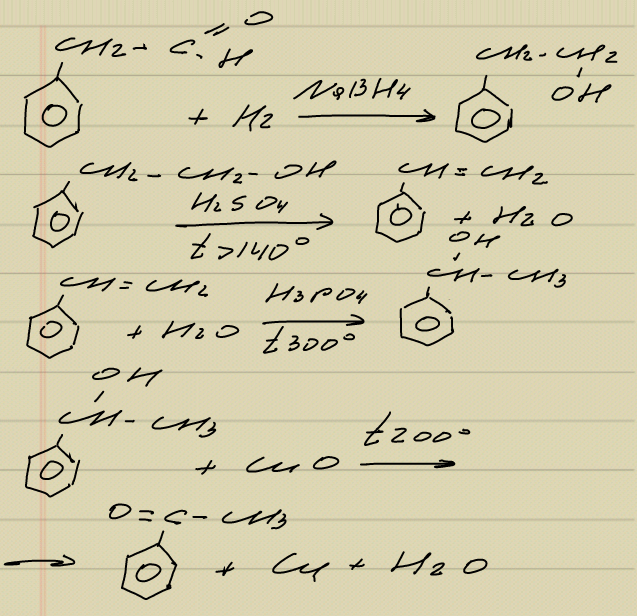 CH2 - C = O
H
+ H2 NaBH4 → CH2 - CH2
OH
CH2 - CH2 - OH H2SO4 t>140° → CH = CH2 + H2O
CH = CH2 + H2O H3PO4 t300° → OH
CH - CH3
OH
CH - CH3 + CuO t200° →
→ O = C - CH3 + Cu + H2O